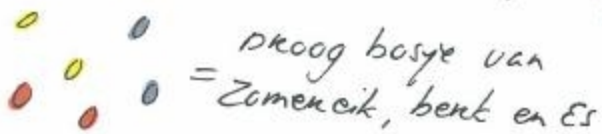 = Droog bosje van
Zomereik, berk en Es